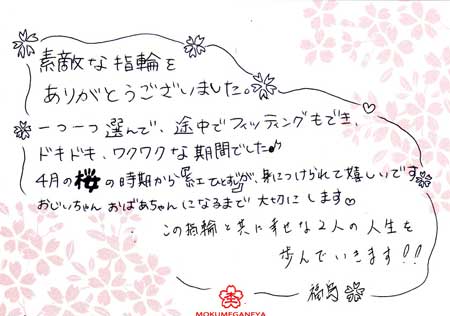 素敵な指輪を
ありがとうございました。
一つ一つ選んで、途中でフィッティングもでき、
ドキドキ、ワクワクな期間でした♪
4月の桜の時期から「紅ひとすじ」が、身につけられて嬉しいです
おじいちゃん おばあちゃんになるまで大切にします♡
この指輪と共に幸せな2人の人生を
歩んでいきます!!
福島
MOKUMEGANEYA